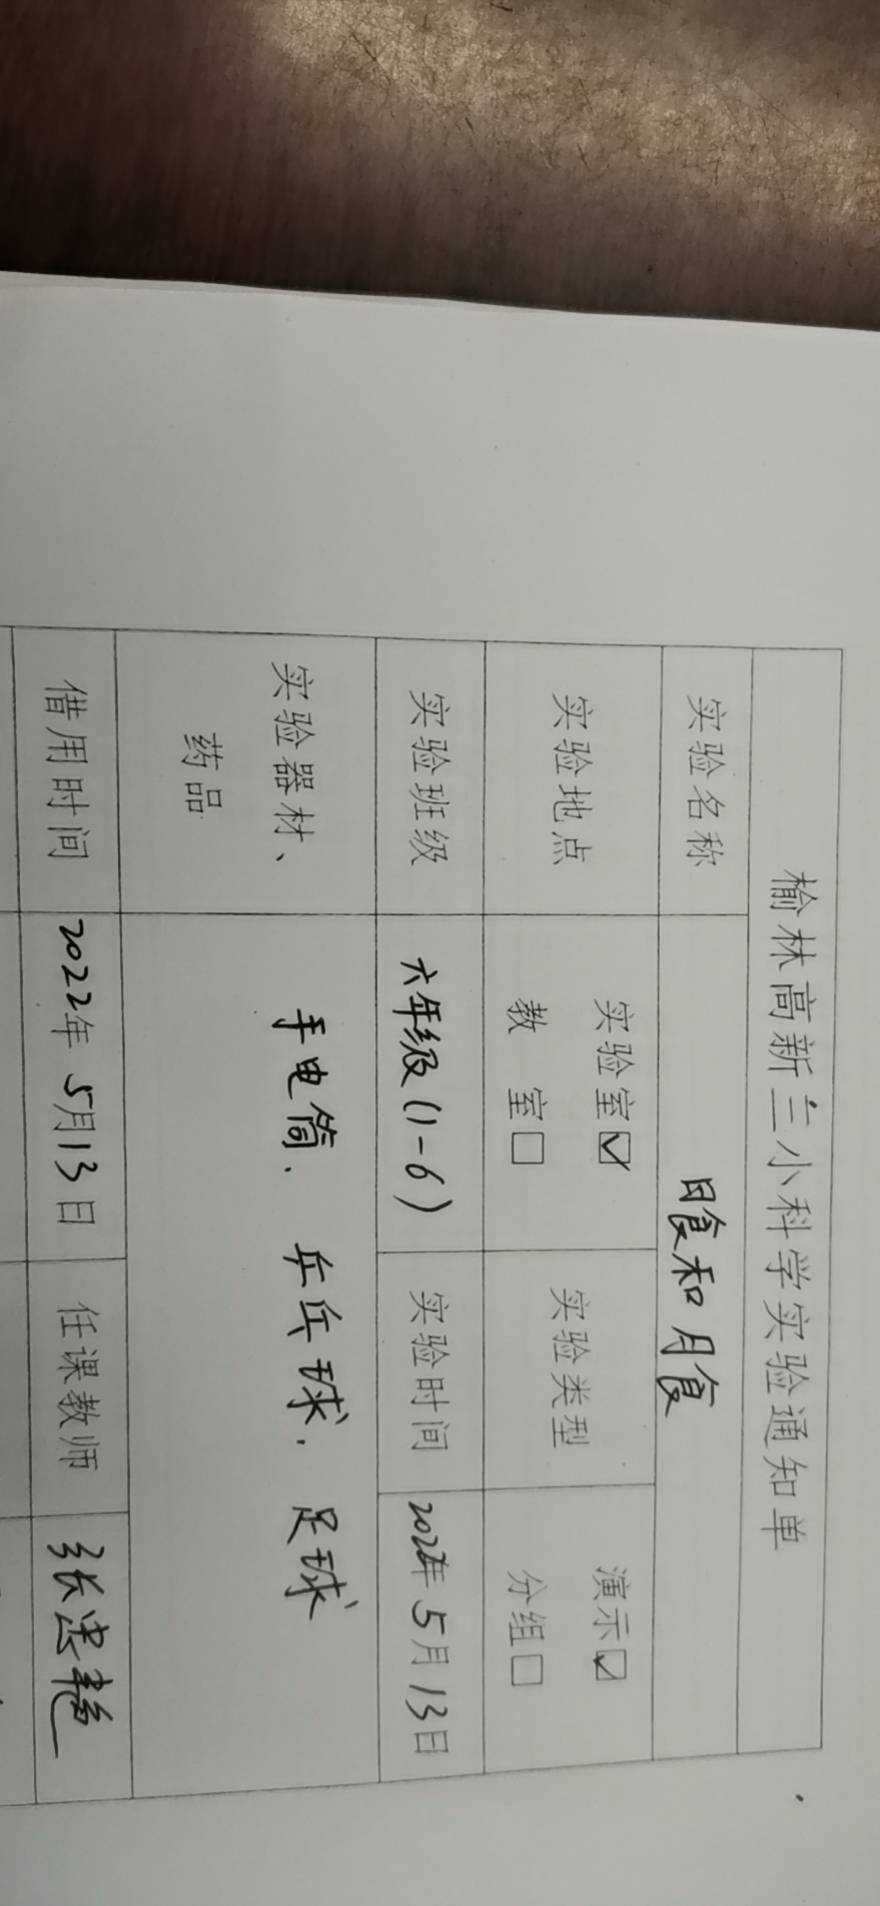 榆林高新三小科学实验通知单
实验名称 日食和月食
实验地点 实验室☑ 教 室☐ 实验类型 演示☑ 分组☐
实验班级 六年级(1-6) 实验时间 2022年5月13日
实验器材、药品 手电筒、乒乓球、足球
借用时间 2022年5月13日 任课教师 张忠艳